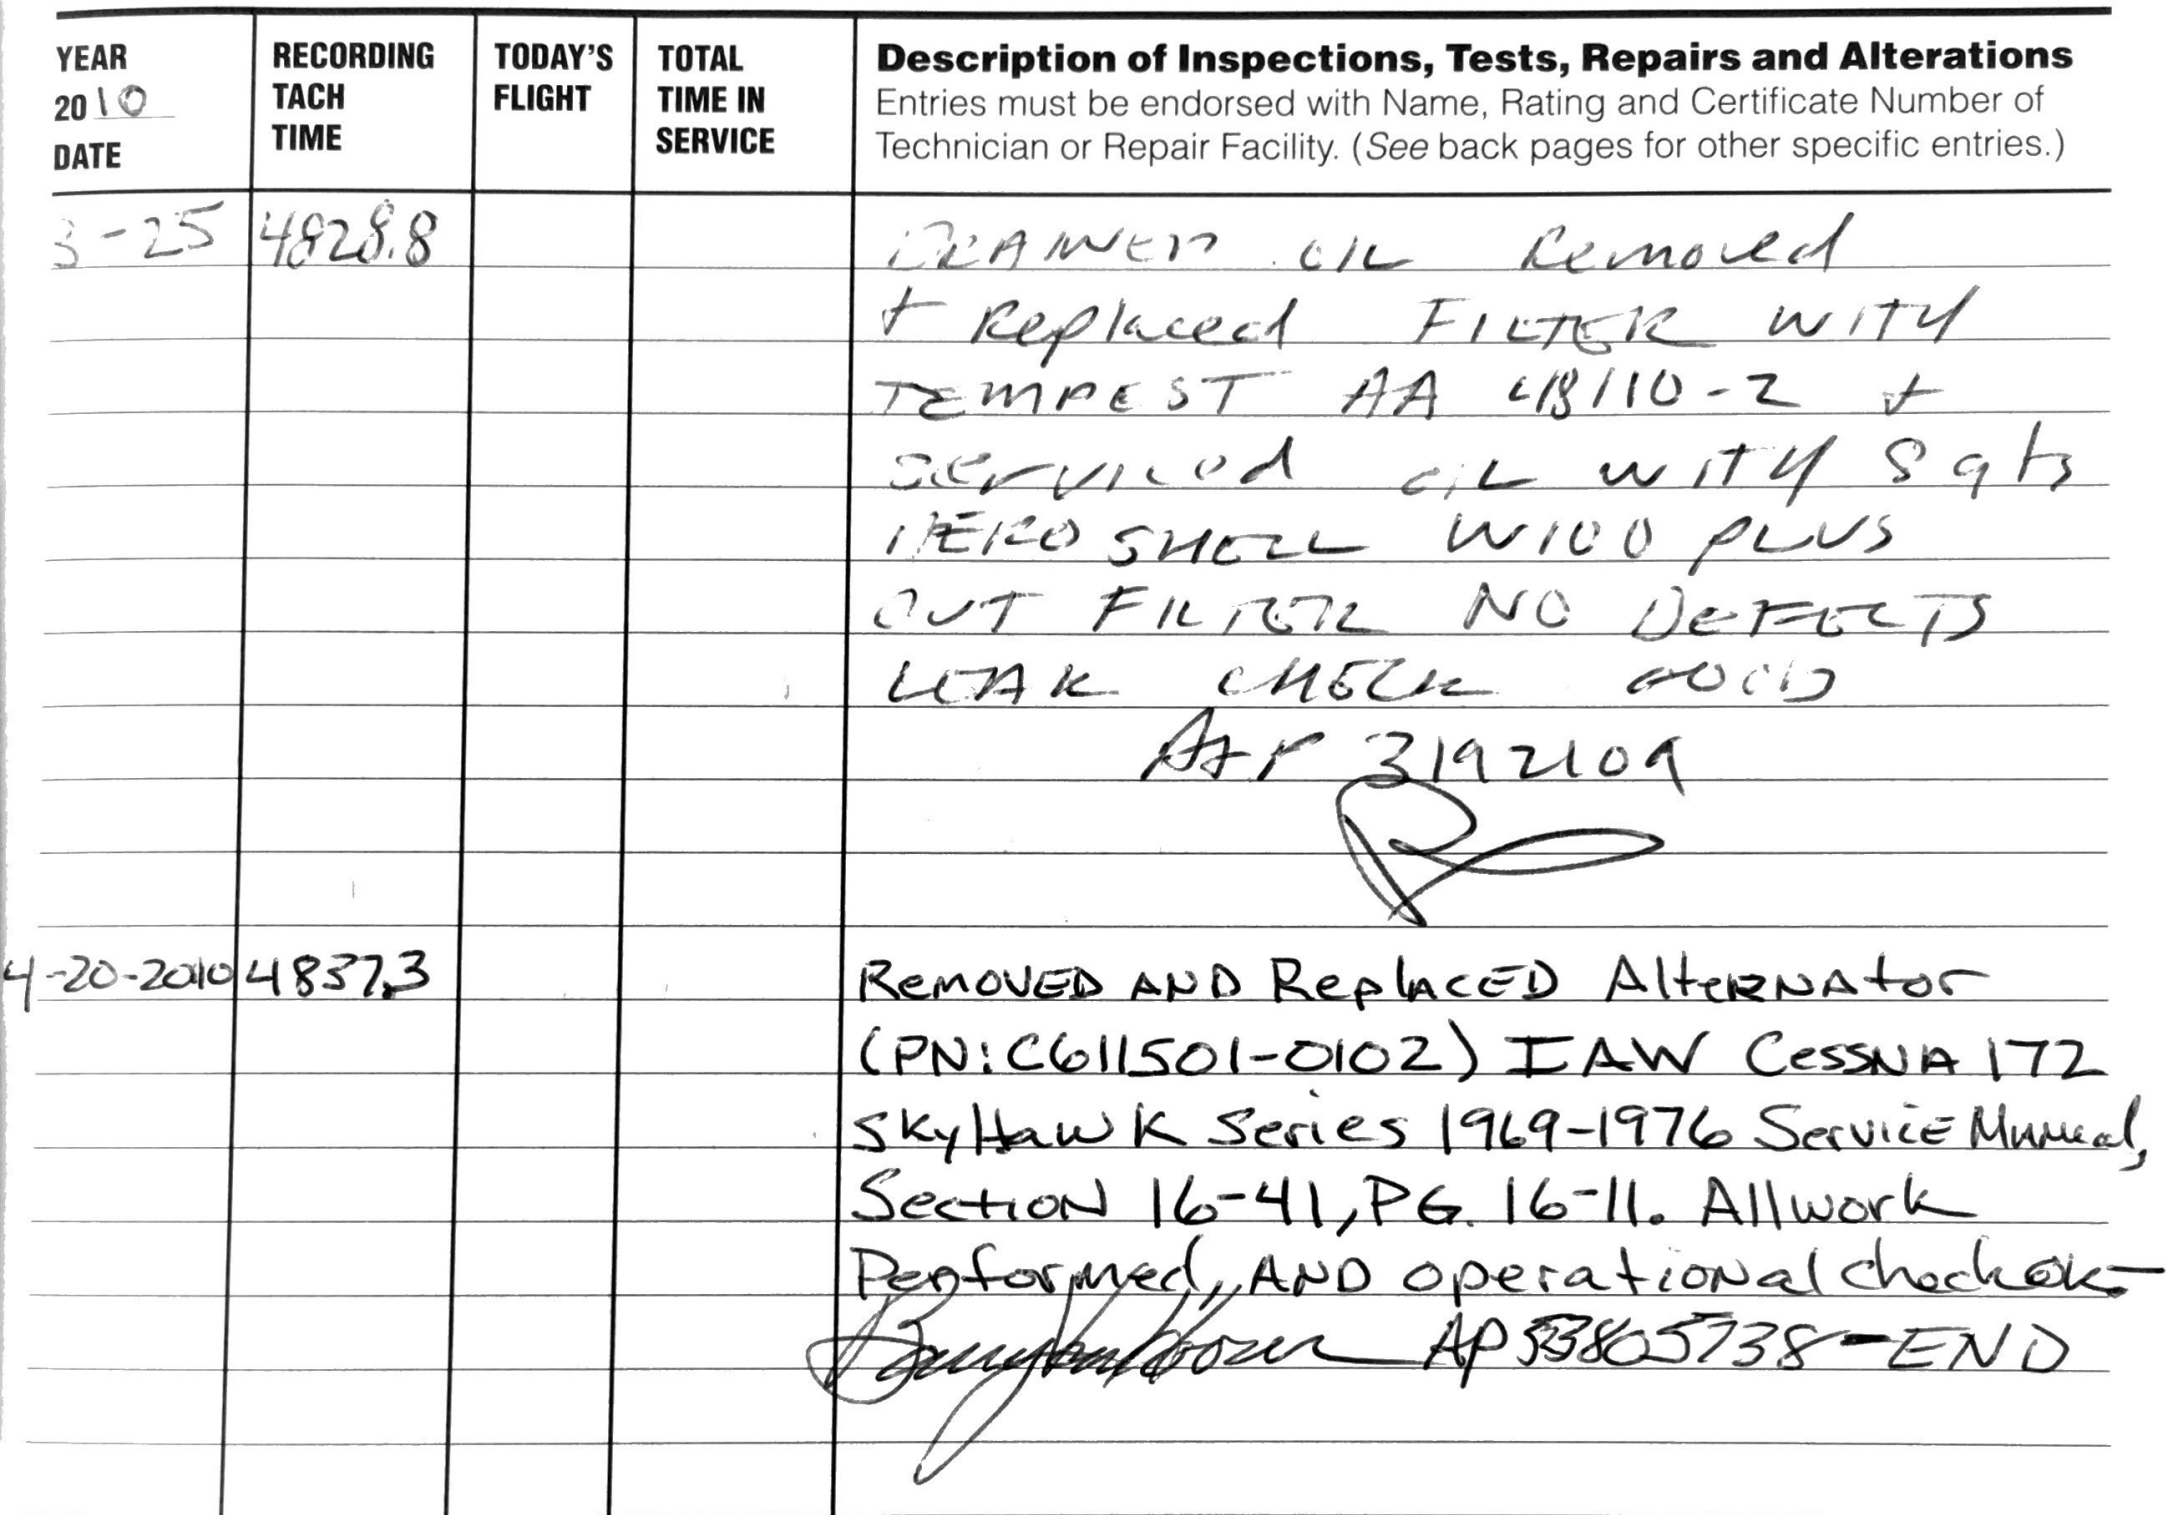 YEAR
2010
DATE
RECORDING
TACH
TIME
TODAY'S
FLIGHT
TOTAL
TIME IN
SERVICE
Description of Inspections, Tests, Repairs and Alterations
Entries must be endorsed with Name, Rating and Certificate Number of
Technician or Repair Facility. (See back pages for other specific entries.)
3-25 4828.8 DRAINED OIL Removed
+ Replaced FILTER WITH
TEMPEST AA 48110-2 +
serviced oil WITH 8 qts
AERO SHELL W100 PLUS
CUT FILTER NO DEFECTS
LEAK CHECK GOOD
A+P 3192109
4-20-2010 4837.3 REMOVED AND Replaced Alternator
(PN:C611501-0102) IAW Cessna 172
SkyHawk Series 1969-1976 Service Manual,
Section 16-41, PG. 16-11. All work
Performed, AND operational check ok-
AP 53805738-END